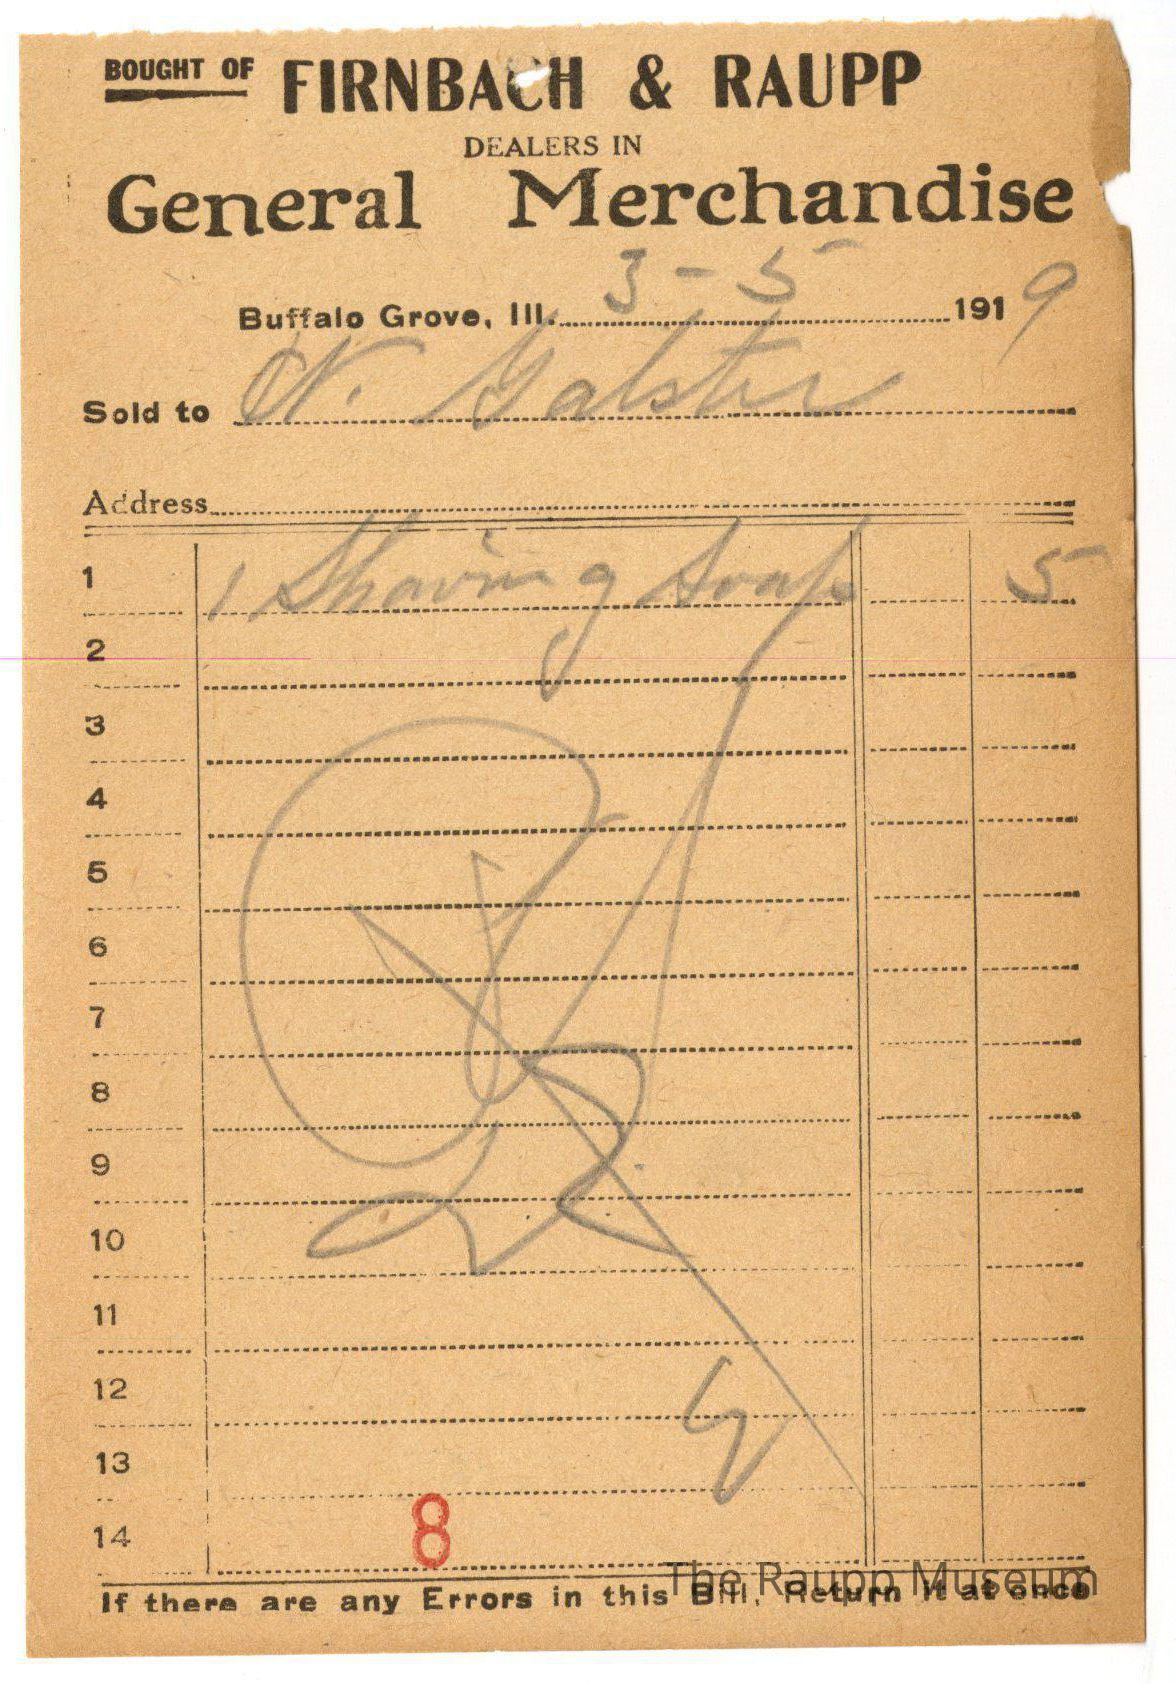 BOUGHT OF FIRNBACH & RAUPP
DEALERS IN
General Merchandise
Buffalo Grove, Ill. 3-5 1919
Sold to N. Galster
Address
1 1 Shaving Soap 5
2
3
4
5
6
7
8
9
10
11
12
13
14
8
The Raupp Museum
If there are any Errors in this Bill, Return it at once